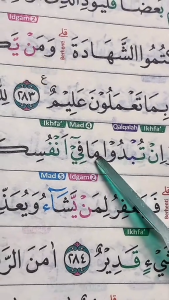 بَعْضًا فَلْيُؤَدِّ الَّذِى
Idgam 2
كْتُمُوا الشَّهَادَةَ ۗ وَمَنْ يَّكْ
بِمَا تَعْمَلُوْنَ عَلِيْمٌ ࣖ ٢٨٣
Ikhfa' Mad 4 Qalqalah Ikhfa'
وَاِنْ تُبْدُوْا مَا فِيْٓ اَنْفُسِكُ
Mad 5 Idgam 2
فَيَغْفِرُ لِمَنْ يَّشَاۤءُ وَيُعَذِّ
Ikhfa'
شَيْءٍ قَدِيْرٌ ٢٨٤ اٰمَنَ الرَّ